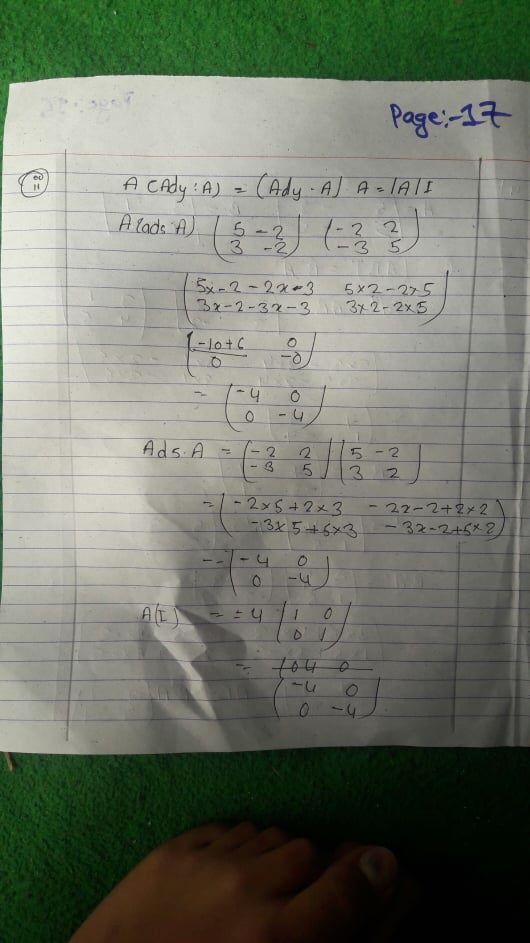 Page:-17
A (Ady:A) = (Ady.A) A = |A| I
A(ads A) (5 -2 (-2 2
3 -2) -3 5)
(5x-2-2x-3 5x2-2x5
3x-2-3x-3 3x2-2x5)
(-10+6 0
0 -0)
= (-4 0
0 -4)
Ads.A = (-2 2 (5 -2
-3 5) 3 2)
= (-2x5+2x3 -2x-2+2x2
-3x5+5x3 -3x-2+5x2)
-- (-4 0
0 -4)
A(I) = =4 (1 0
0 1)
= 104 0
(-4 0
0 -4)